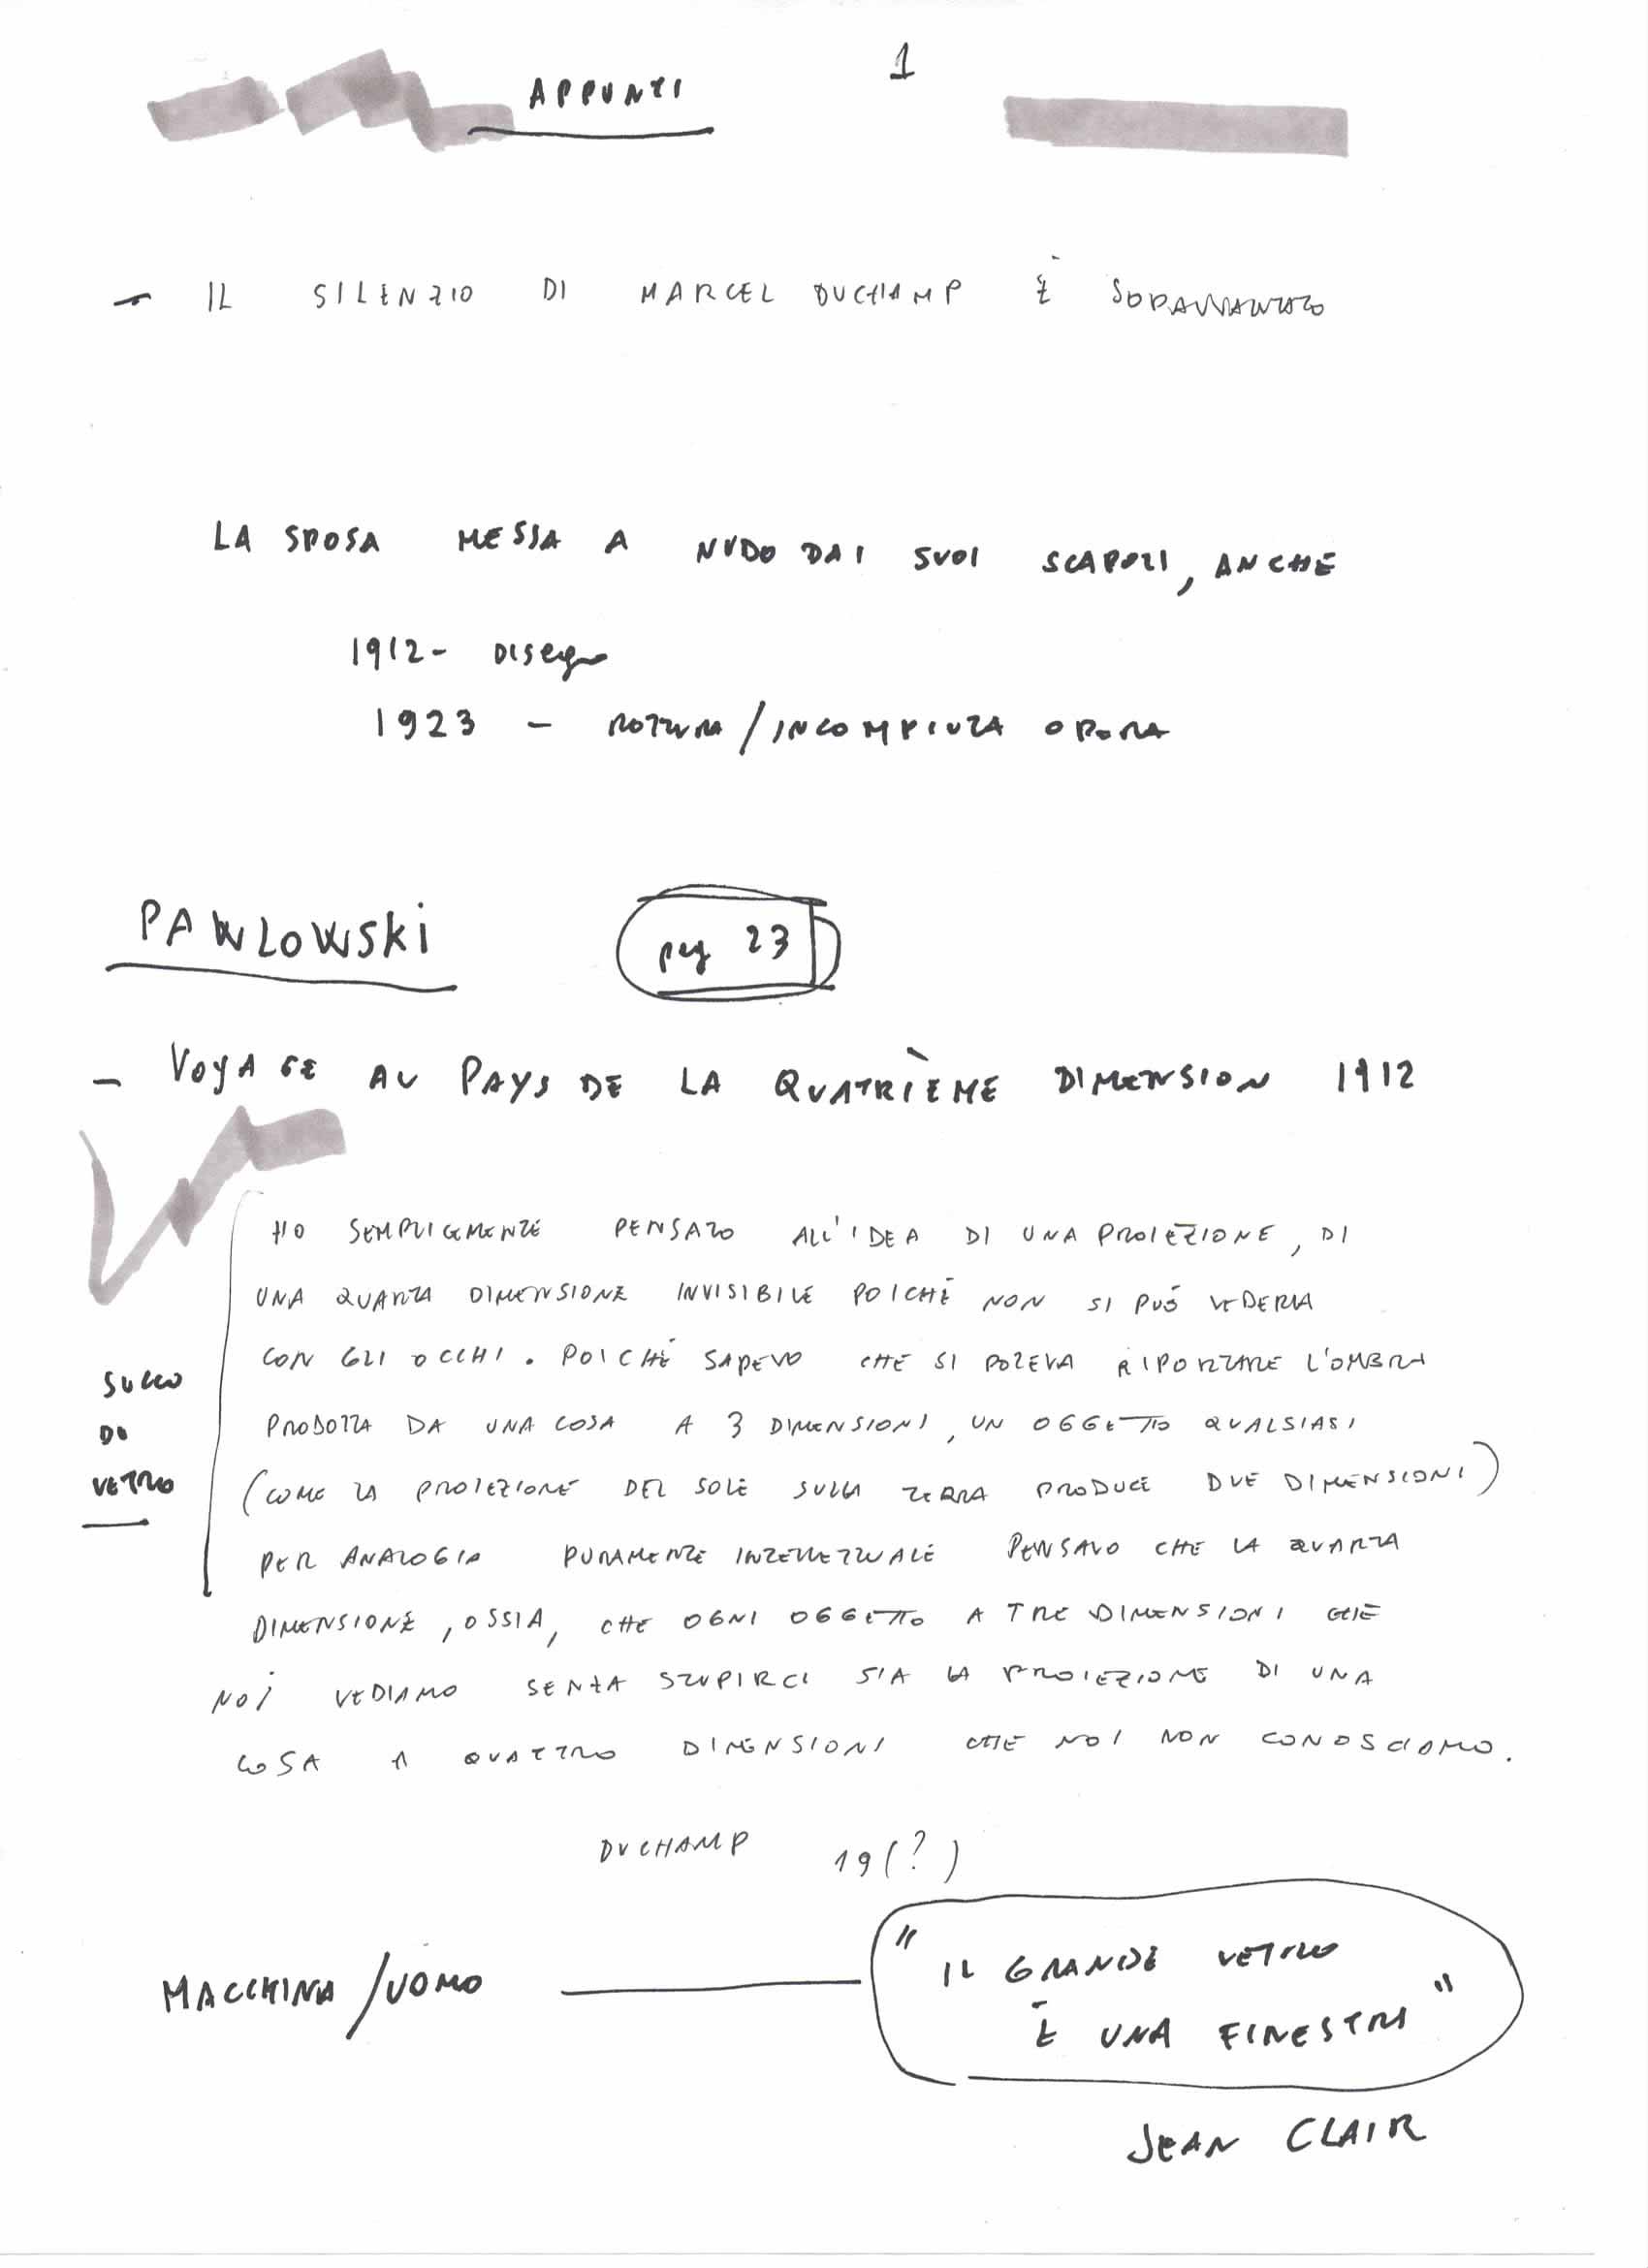 1
APPUNTI
- IL SILENZIO DI MARCEL DUCHAMP È SOPRAVVALUTATO
LA SPOSA MESSA A NUDO DAI SUOI SCAPOLI, ANCHE
1912 - DISEGNO
1923 - ROTTURA / INCOMPIUTA OPERA
PAWLOWSKI
pag 23
- VOYAGE AU PAYS DE LA QUATRIÈME DIMENSION 1912
HO SEMPLICEMENTE PENSATO ALL'IDEA DI UNA PROIEZIONE, DI
UNA QUARTA DIMENSIONE INVISIBILE POICHÈ NON SI PUÒ VEDERLA
CON GLI OCCHI. POICHÈ SAPEVO CHE SI POTEVA RIPORTARE L'OMBRA
PRODOTTA DA UNA COSA A 3 DIMENSIONI, UN OGGETTO QUALSIASI
(COME LA PROIEZIONE DEL SOLE SULLA TERRA PRODUCE DUE DIMENSIONI)
PER ANALOGIA PURAMENTE INTELLETTUALE PENSAVO CHE LA QUARTA
DIMENSIONE, OSSIA, CHE OGNI OGGETTO A TRE DIMENSIONI CHE
NOI VEDIAMO SENZA STUPIRCI SIA LA PROIEZIONE DI UNA
COSA A QUATTRO DIMENSIONI CHE NOI NON CONOSCIAMO.
VETRO
DUCHAMP 19(?)
MACCHINA / UOMO
"IL GRANDE VETRO
È UNA FINESTRA"
JEAN CLAIR